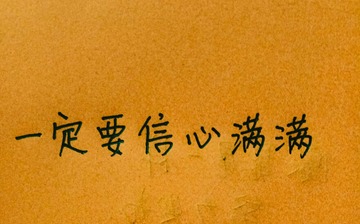 一定要信心满满